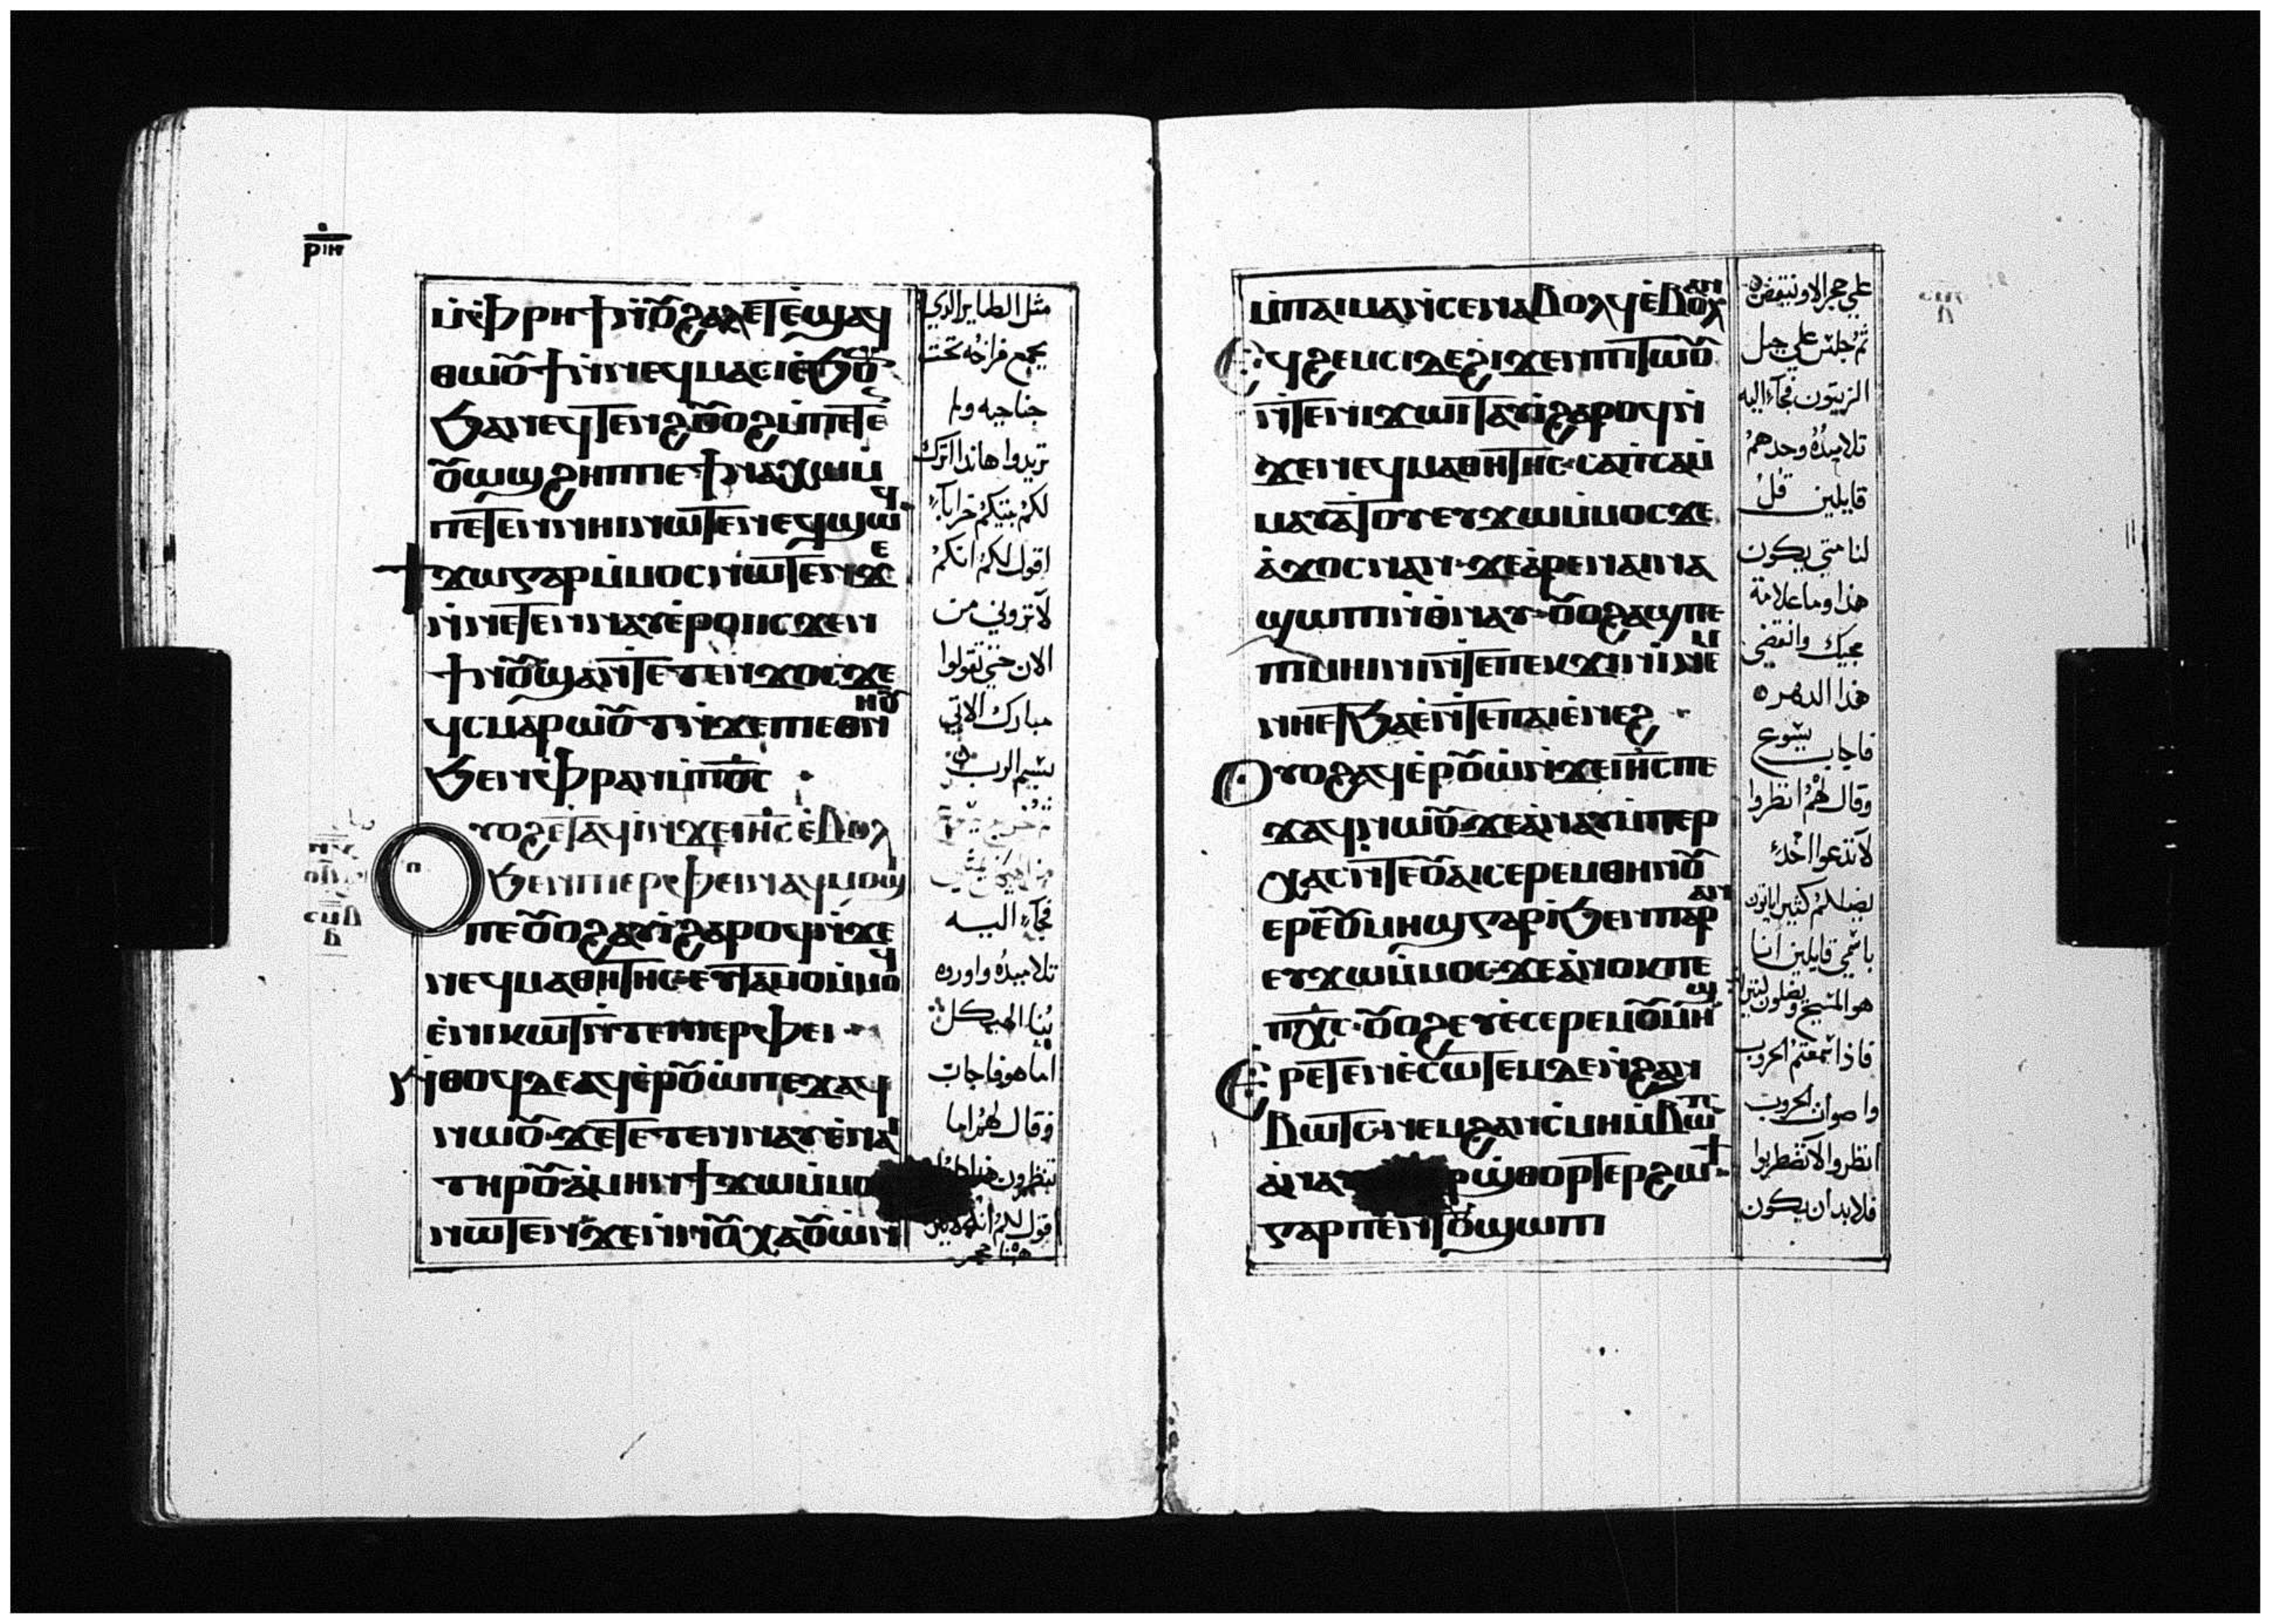 ⲣⲓⲏ
ⲙ̀ⲫⲣⲏϯ ⲛ̀ⲟⲩϩⲁⲗⲏⲧ ⲉ̀ϣⲁϥ
ⲑⲱⲟⲩϯ ⲛ̀ⲛⲉϥⲙⲁⲥ ⲉ̀ϧⲟⲩⲛ
ϧⲁ ⲛⲉϥⲧⲉⲛϩ ⲟⲩⲟϩ ⲙ̀ⲡⲉⲧⲉ
ⲟⲩⲱϣ ϩⲏⲡⲡⲉ ϯⲛⲁⲭⲱ ⲙ̀
ⲡⲉⲧⲉⲛⲏⲓ ⲛⲱⲧⲉⲛ ⲉϥϣⲱϥ
ϯϫⲱ ⲅⲁⲣ ⲙ̀ⲙⲟⲥ ⲛⲱⲧⲉⲛ ϫⲉ
ⲛ̀ⲛⲉⲧⲉⲛⲛⲁⲩ ⲉ̀ⲣⲟⲓ ⲓⲥϫⲉⲛ
ϯⲛⲟⲩ ϣⲁⲛⲧⲉⲧⲉⲛϫⲟⲥ ϫⲉ
ϥⲥⲙⲁⲣⲱⲟⲩⲧ ⲛ̀ϫⲉ ⲡⲉⲑⲛⲏⲟⲩ
ϧⲉⲛ ⲫⲣⲁⲛ ⲙ̀ⲡⲟ̅ⲥ̅
ⲟⲩⲟϩ ⲉⲧⲁϥⲓ̀ ⲛ̀ϫⲉ ⲓⲏ̅ⲥ̅ ⲉ̀ⲃⲟⲗ
ϧⲉⲛ ⲡⲓⲉⲣⲫⲉⲓ ⲛⲁϥⲙⲟϣⲓ
ⲡⲉ ⲟⲩⲟϩ ⲁⲩⲓ̀ ϩⲁⲣⲟϥ ⲛ̀ϫⲉ
ⲛⲉϥⲙⲁⲑⲏⲧⲏⲥ ⲉⲩⲧⲁⲙⲟ ⲙ̀ⲙⲟϥ
ⲉ̀ⲛⲓⲕⲱⲧ ⲛ̀ⲧⲉ ⲡⲓⲉⲣⲫⲉⲓ
ⲛ̀ⲑⲟϥ ⲇⲉ ⲁϥⲉ̀ⲣⲟⲩⲱ̀ ⲡⲉϫⲁϥ
ⲛⲱⲟⲩ ϫⲉ ⲧⲉⲧⲉⲛⲛⲁⲩ ⲉ̀ⲛⲁⲓ
ⲧⲏⲣⲟⲩ ⲁ̀ⲙⲏⲛ ϯϫⲱ ⲙ̀ⲙⲟ
ⲛⲱⲧⲉⲛ ϫⲉ ⲛ̀ⲛⲟⲩⲭⲁ ⲟⲩⲱ̀ⲛⲓ
مثل الطاير الذي
يجمع فراخه تحت
جناحيه ولم
تريدوا هاندا اترك
لكم بيتكم خرابآء
اقول لكم انكم
لا تروني من
الان حتي تقولوا
مبارك الاتي
بسم الرب
فجآء اليه
تلاميذه واوروه
بنا الهيكل
اما هو فاجاب
وقال لهم اما
تنظرون هذا
اقول لكم انه لا يترك
هاهنا حجر
ⲙ̀ⲡⲁⲓⲙⲁ ⲛ̀ⲥⲉⲛⲁⲃⲟⲗϥ ⲉ̀ⲃⲟⲗ ⲁⲛ
ⲉϥϩⲉⲙⲥⲓ ⲇⲉ ϩⲓϫⲉⲛ ⲡⲓⲧⲱⲟⲩ
ⲛ̀ⲧⲉ ⲛⲓϫⲱⲓⲧ ⲁⲩⲓ̀ ϩⲁⲣⲟϥ ⲛ̀
ϫⲉ ⲛⲉϥⲙⲁⲑⲏⲧⲏⲥ ⲥⲁⲡⲥⲁ ⲙ̀
ⲙⲁⲩⲁⲧⲟⲩ ⲉⲩϫⲱ ⲙ̀ⲙⲟⲥ ϫⲉ
ⲁ̀ϫⲟⲥ ⲛⲁⲛ ϫⲉ ⲁ̀ⲣⲉ ⲛⲁⲓ ⲛⲁ
ϣⲱⲡⲓ ⲛ̀ⲑⲛⲁⲩ ⲟⲩⲟϩ ⲁϣ ⲡⲉ
ⲡⲓⲙⲏⲓⲛⲓ ⲛ̀ⲧⲉ ⲡⲉⲕϫⲓⲛⲓ̀ ⲛⲉⲙ
ⲛⲏⲉⲧϧⲁⲉ̀ ⲛ̀ⲧⲉ ⲡⲁⲓⲉ̀ⲛⲉϩ
ⲟⲩⲟϩ ⲁϥⲉ̀ⲣⲟⲩⲱ̀ ⲛ̀ϫⲉ ⲓⲏ̅ⲥ̅ ⲡⲉ
ϫⲁϥ ⲛⲱⲟⲩ ϫⲉ ⲁ̀ⲛⲁⲩ ⲙ̀ⲡⲉⲣ
ⲭⲁⲥ ⲛ̀ⲧⲉ ⲟⲩⲁⲓ ⲥⲉⲣⲉⲙ ⲑⲏⲛⲟⲩ
ⲉⲣⲉ ⲟⲩⲙⲏϣ ⲅⲁⲣ ⲓ̀ ϧⲉⲛ ⲡⲁⲣⲁⲛ
ⲉⲩϫⲱ ⲙ̀ⲙⲟⲥ ϫⲉ ⲁ̀ⲛⲟⲕ ⲡⲉ
ⲡⲭ̅ⲥ̅ ⲟⲩⲟϩ ⲉⲩⲉ̀ⲥⲉⲣⲉⲙ ⲟⲩⲙⲏϣ
ⲉⲣⲉⲧⲉⲛⲉ̀ⲥⲱⲧⲉⲙ ⲇⲉ ⲛ̀ϩⲁⲛ
ⲃⲱⲧⲥ ⲛⲉⲙ ϩⲁⲛⲥⲙⲏ ⲙ̀ⲃⲱⲧⲥ
ⲣϣⲑⲟⲣⲧⲉⲣ ϩⲱϯ
ⲅⲁⲣ ⲡⲉ ⲛ̀ⲧⲟⲩϣⲱⲡⲓ
علي حجر الا وينتقض
ثم جلس علي جبل
الزيتون فجآء اليه
تلاميذه وحدهم
قايلين قل
لنا متي يكون
هذا وما علامة
مجيك وانقضي
هذا الدهر
فاجاب يسوع
وقال لهم انظروا
لا تدعوا احدآ
يضلكم كثير ياتون
باسمي قايلين انا
هو المسيح ويضلون كثيرا
فاذا سمعتم الحروب
واصوات الحروب
انظروا لا تضطربوا
فلا بد ان يكون